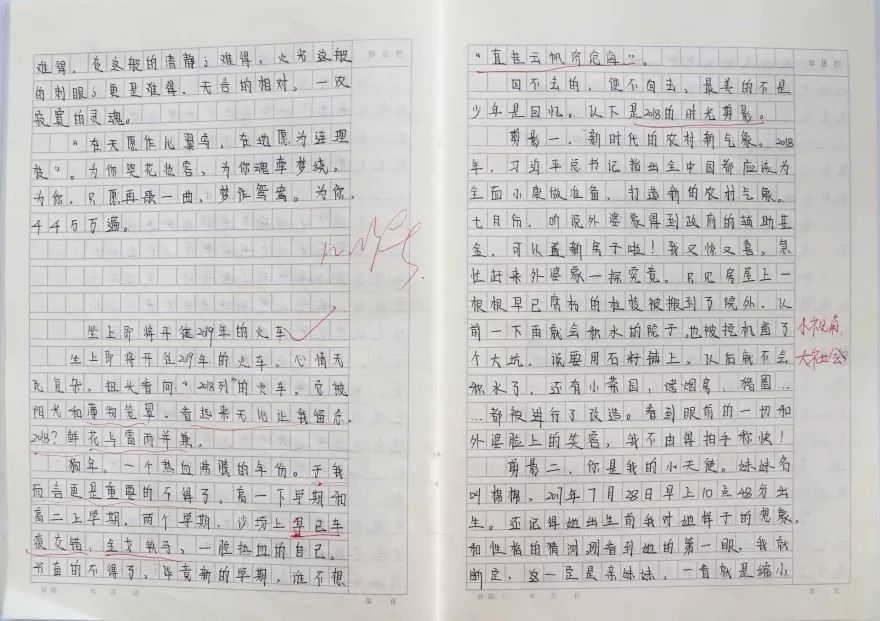 难得，夜这般的清静；难得，火光这般
的刺眼；更是难得，无言的相对，一双
寂寞的灵魂。
“在天愿作比翼鸟，在地愿为连理
枝”。为你哭花妆容，为你魂牵梦绕。
为你，只愿再歌一曲，梦作鸳鸯。为你，
千千万万遍。
坐上即将开往2019年的火车
坐上即将开往2019年的火车，心情无
比复杂，扭头看向“2018列”的火车，它被
阳光和薄物笼罩。看起来无比让我留念。
2018？鲜花与雷雨并兼。
狗年，一个热血沸腾的年份。于我
而言更是重要的不得了，高一下学期和
高二上学期，两个学期，沙场上早已车
夜交错，金戈铁马，一腔热血的自己。
书查的不得了。毕竟新的学期，谁不想
修正栏
日期： 年 月 日
第 页
“直挂云帆济沧海”。
回不去的，便不回去，最美的不是
少年是回忆。以下是2018的时光剪影。
剪影一，新时代的农村新气象。2018
年，习近平总书记指出全中国都应该为
全面小康做准备，打造新的农村气象。
七月份，听说外婆家得到政府的辅助基
金，可以盖新房子啦！我又惊又喜，急
忙赶来外婆家一探究竟。只见房屋上一
根根早已腐朽的柱梭被搬到了院外，以
前一下雨就会积水的院子，也被挖机凿了
个大坑，说要用石籽铺上，以后就不会
积水了。还有小菜园，烤烟房，猪圆…
…都被进行了改造。看到眼前的一切和
外婆脸上的笑容，我不由得拍手称快！
剪影二，你是我的小天使。妹妹名
叫棉棉，2017年7月28日早上10点48分出
生。还记得她出生前我对她样子的想象，
和性格的猜测，刚看到她的第一眼，我就
断定，这一定是亲妹妹，一看就是缩小
修正栏
小视角，
大社会
日期： 年 月 日
第 页